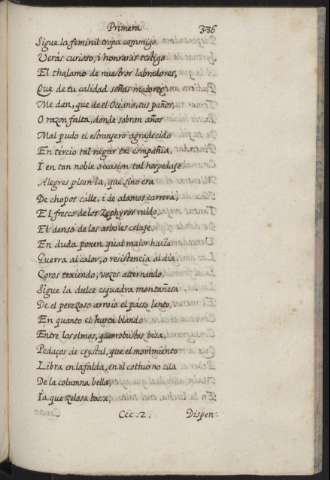 Primera
336
Sigue la femenil tropa conmigo
Verás curioso, i honrarás testigo
El thalamo de nuestros labradores,
Que de tu calidad señas maiores
Me dan, que de el Oceano tus paños,
O razon falta, donde sobran años
Mal pudo el estrangero agradecido
En tercio tal negar tal compañia,
I en tan noble occasion tal hospedage
Alegres pisan la, que sino era
De chopos calle, i de alamos carrera,
El fresco de los Zephyros ruido,
El denso de los arboles celage,
En duda ponen qual maior hacia
Guerra al calor, o resistencia al dia
Coros texiendo, vozes alternando,
Sigue la dulce esquadra montañesa
De el perezoso arroio el passo lento,
En quanto el hurta blando
Entre los olmos, que robustos besa,
Pedaços de crystal, que el movimiento
Libra en la falda, en el cothurno ella
De la columna bella,
Ia que zelosa bassa,
Ccc. 2.
Dispen-